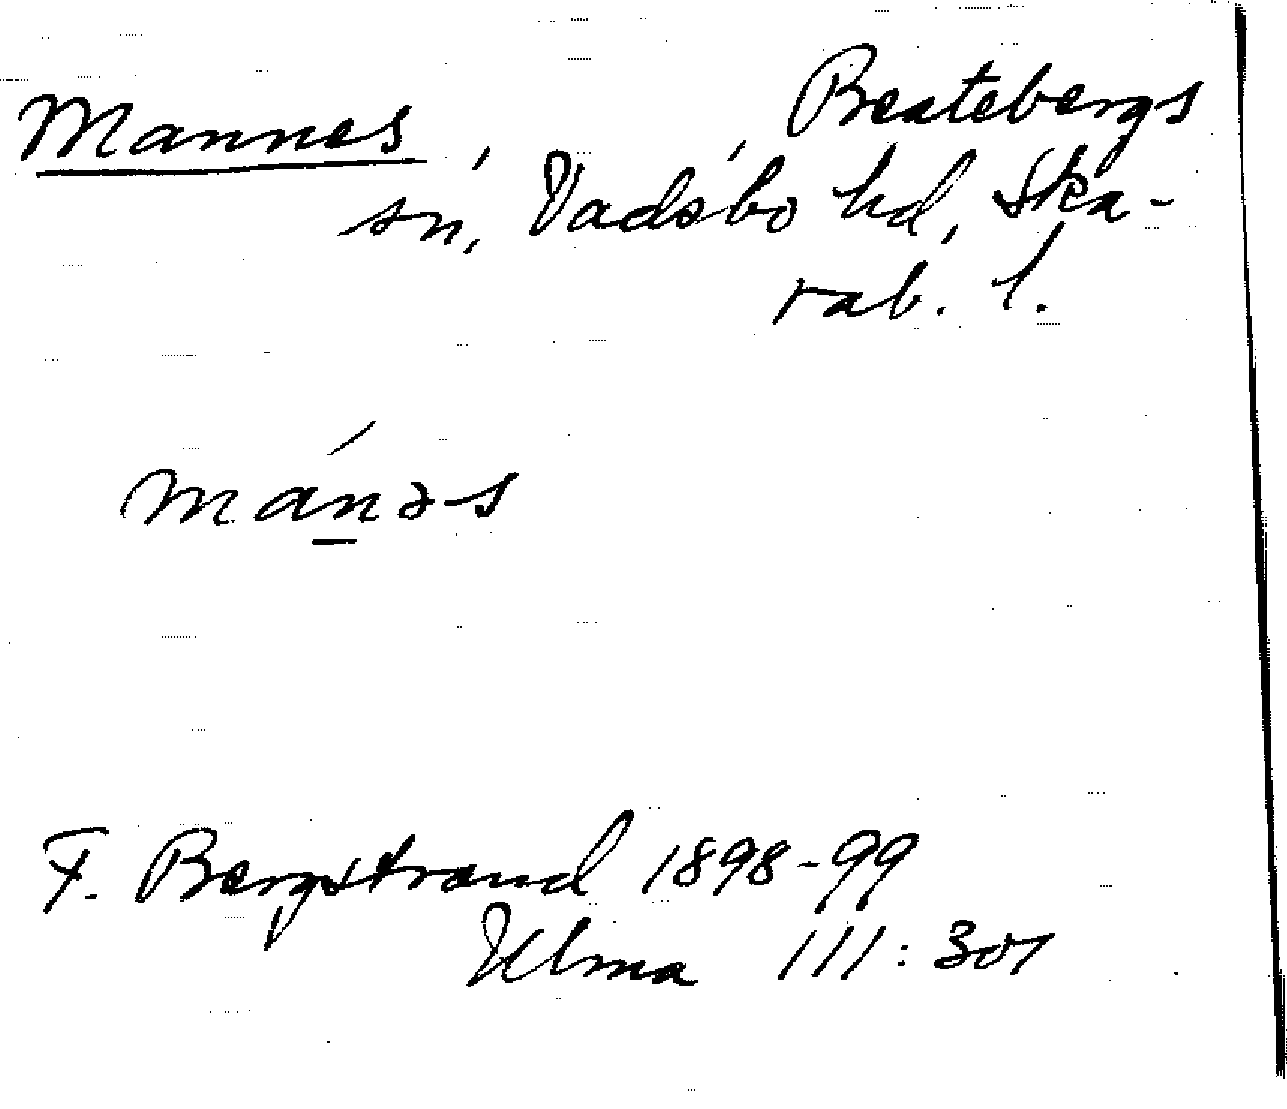 Mannes, Beatebergs
sn, Vadsbo hd, Ska-
rab. l.
mánəs
F. Bergstrand 1898-99
Ulma 111:301